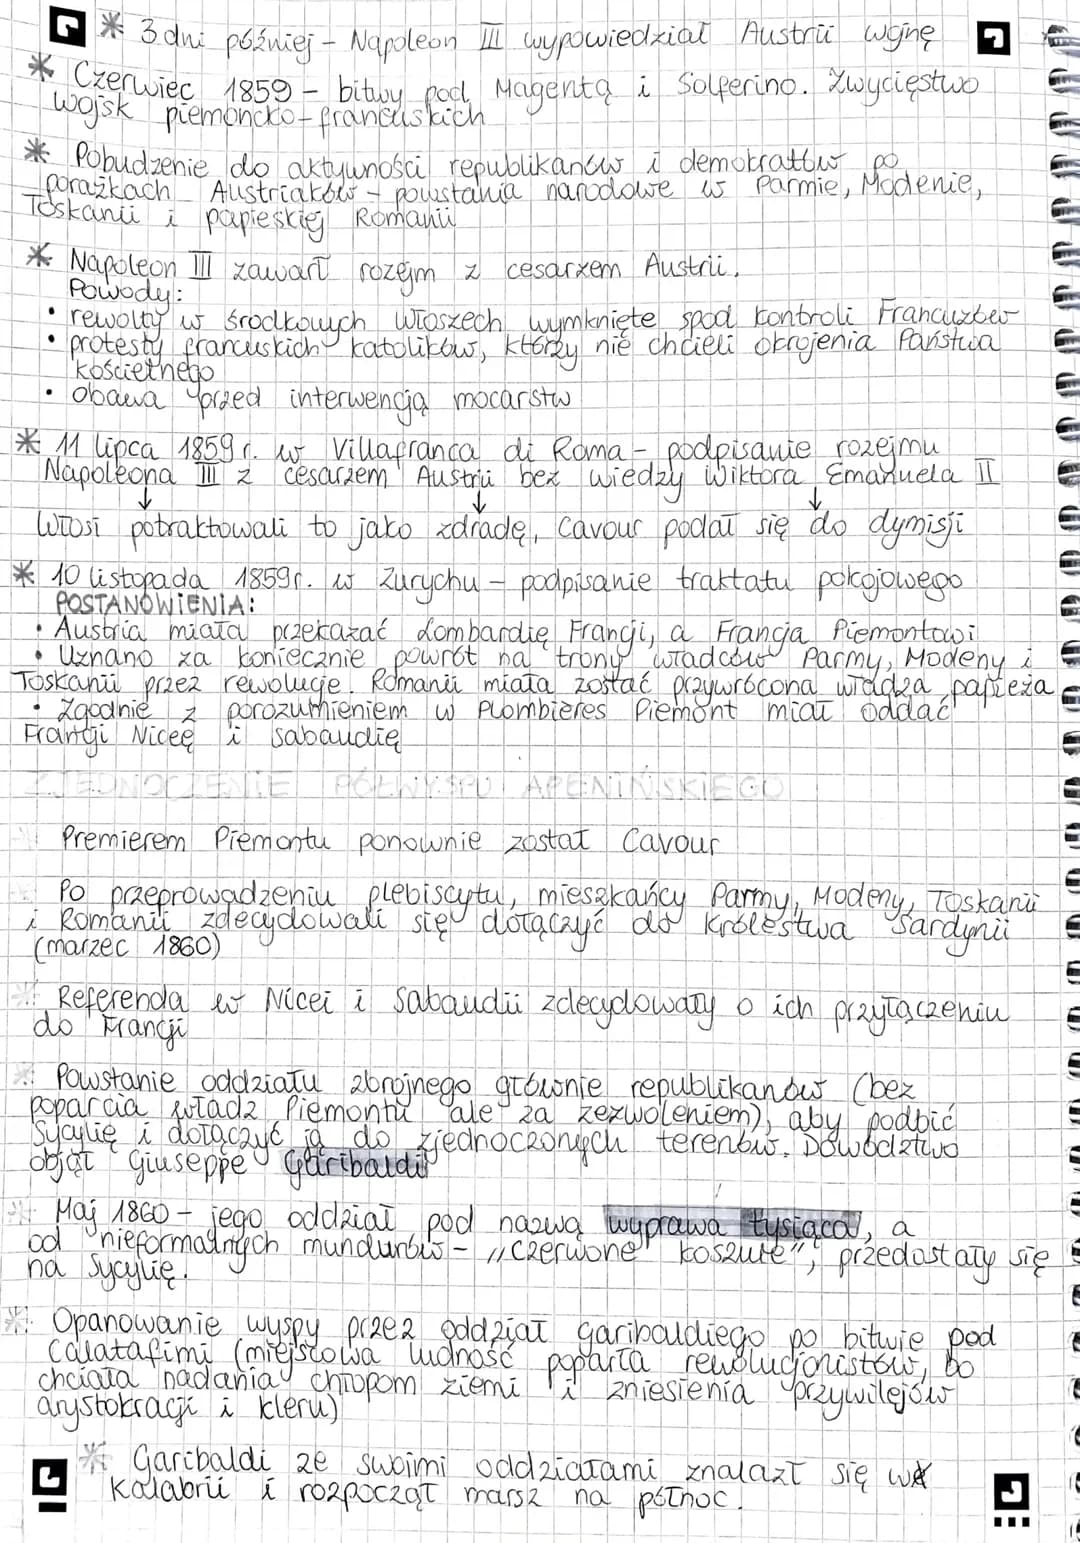 * 3 dni później - Napoleon III wypowiedział Austrii wojnę
* Czerwiec 1859 - bitwy pod Magentą i Solferino. Zwycięstwo
wojsk piemoncko-francuskich
* Pobudzenie do aktywności republikanów i demokratów po
porażkach Austriaków - powstania narodowe w Parmie, Modenie,
Toskanii i papieskiej Romanii
* Napoleon III zawarł rozejm z cesarzem Austrii.
Powody:
• rewolty w środkowych Włoszech wymknięte spod kontroli Francuzów
• protesty francuskich katolików, którzy nie chcieli okrojenia Państwa
kościelnego
• obawa przed interwencją mocarstw
* 11 lipca 1859 r. w Villafranca di Roma - podpisanie rozejmu
Napoleona III z cesarzem Austrii bez wiedzy Wiktora Emanuela II
↓ ↓ ↓
Włosi potraktowali to jako zdradę, Cavour podał się do dymisji
* 10 listopada 1859r. w Zurychu - podpisanie traktatu pokojowego
POSTANOWIENIA:
• Austria miała przekazać Lombardię Francji, a Francja Piemontowi
• Uznano za koniecznie powrót na trony władców Parmy, Modeny i
Toskanii przez rewolucje. Romanii miała zostać przywrócona władza papieża
• Zgodnie z porozumieniem w Plombieres Piemont miał oddać
Francji Niceę i Sabaudię
ZJEDNOCZENIE PÓŁWYSPU APENIŃSKIEGO
* Premierem Piemontu ponownie został Cavour
* Po przeprowadzeniu plebiscytu, mieszkańcy Parmy, Modeny, Toskanii
i Romanii zdecydowali się dołączyć do Królestwa Sardynii
(marzec 1860)
* Referenda w Nicei i Sabaudii zdecydowały o ich przyłączeniu
do Francji
* Powstanie oddziału zbrojnego głównie republikanów (bez
poparcia władz Piemontu ale za zezwoleniem), aby podbić
Sycylię i dołączyć ją do zjednoczonych terenów. Dowództwo
objął Giuseppe Garibaldi
* Maj 1860 - jego oddział pod nazwą wyprawa tysiąca, a
od nieformalnych mundurów - ,,czerwone koszule", przedostały się
na Sycylię.
* Opanowanie wyspy przez oddział garibaldiego po bitwie pod
Calatafimi (miejscowa ludność poparła rewolucjonistów, bo
chciała nadania chłopom ziemi i zniesienia przywilejów
arystokracji i kleru)
* Garibaldi ze swoimi oddziałami znalazł się w
Kalabrii i rozpoczął marsz na północ.